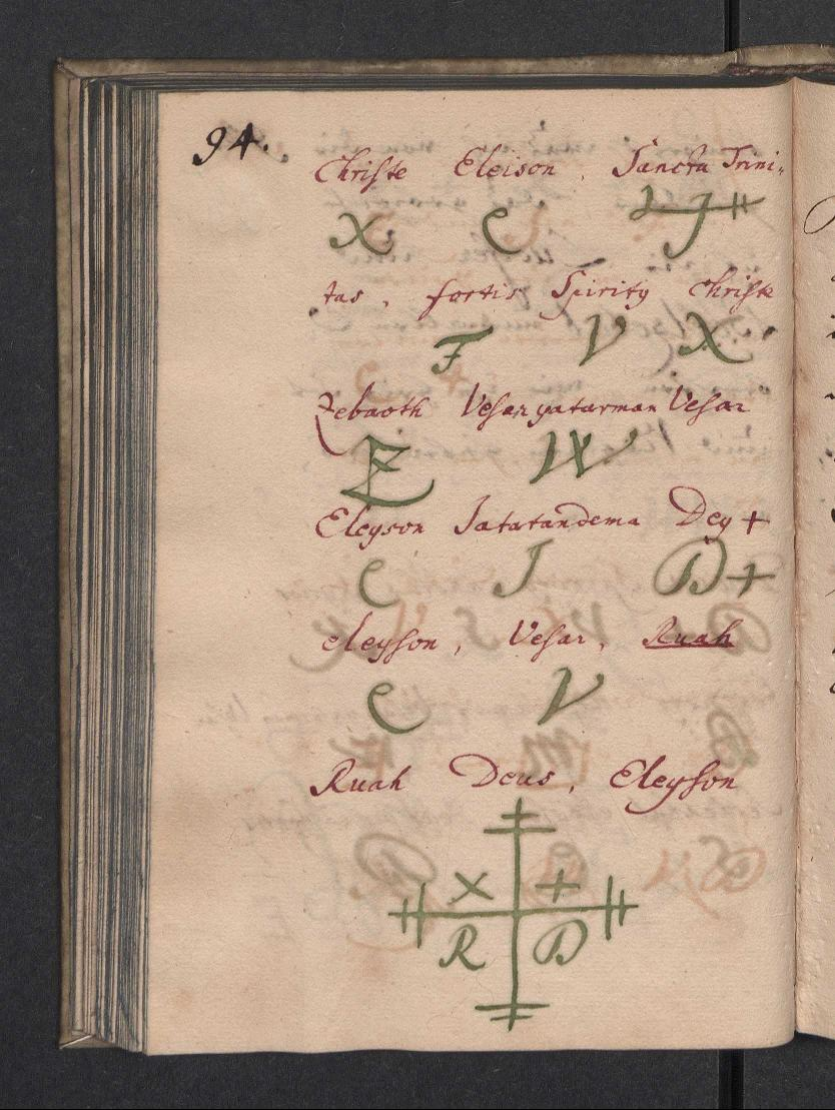 94.
Christe Eleison, Sancta Trini=
X E J J
tas, fortis Spirity Christe
F V X
Zebaoth Vesar yatarman Vesar
Z W
Eleyson Jatatandema Dey +
E J D +
eleyson, Vesar, Ruah
E V
Ruah Deus, Eleyson
X +
R D